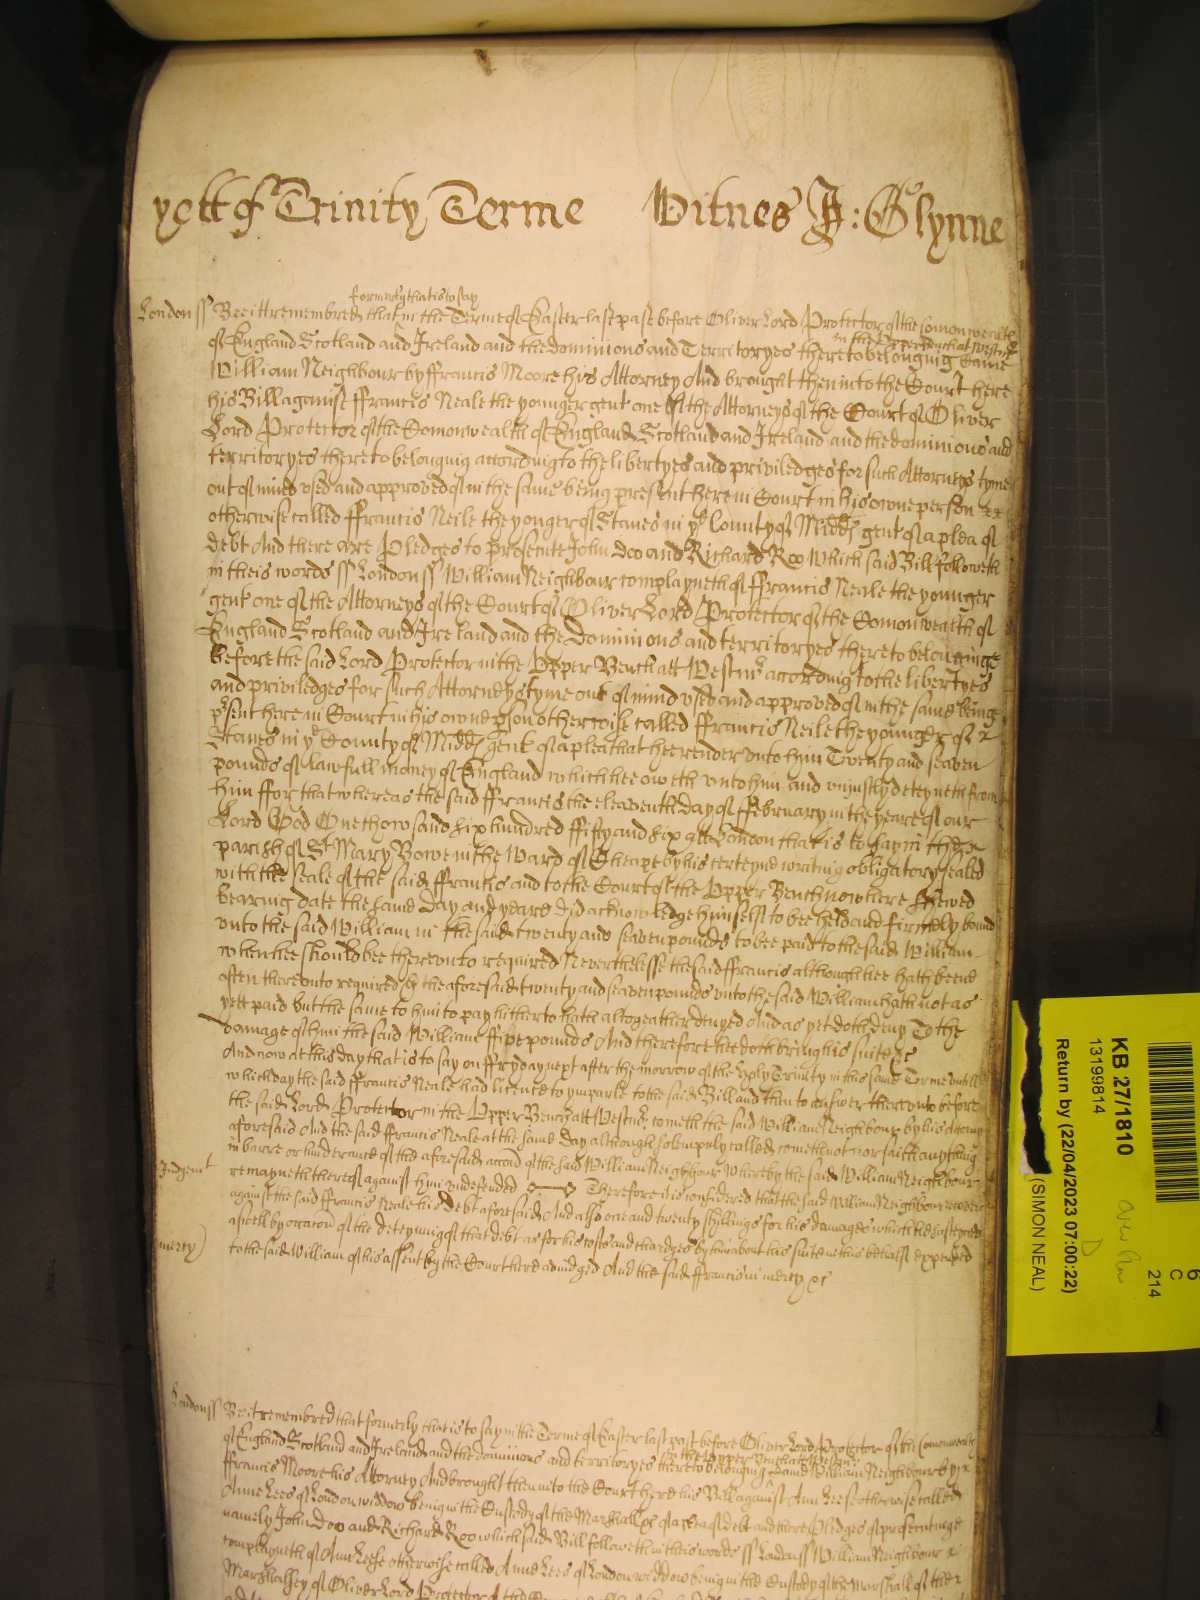 yett of Trinity Terme Witnes J: Glynne
London ss Bee itt remembred that formerly that is to say in the Terme of Easter last past before Oliver Lord Protector of the Comonwealth
of England Scotland and Ireland and the dominions and Territoryes thereto belonging in the Upper bench at Westmr Came
William Neighbour by ffrancis Moore his Attorney And brought then into the Court here
his Bill against ffrancis Neale the younger gent one of the Attorneys of the Court of Oliver
Lord Protector of the Comonwealth of England Scotland and Ireland and the dominions and
territoryes thereto belonging according to the libertyes and priviledges for such Attorneys tyme
out of mind used and approved of in the same being present here in Court in his owne person
otherwise called ffrancis Neile the yonger of Stanes in ye County of Midds gent of a plea of
debt And there are Pledges to prosecute John Doo and Richard Roo Which said Bill followeth
in theis words ss London ss William Neighbour complayneth of ffrancis Neale the younger
gent one of the Attorneys of the Court of Oliver Lord Protector of the Comonwealth of
England Scotland and Ireland and the Dominions and territoryes thereto belonginge
before the said Lord Protector in the Upper Bench att Westmr according to the libertyes
and priviledges for such Attorneys tyme out of mind used and approved of in the same being
psent here in Court in his owne pson otherwise called ffrancis Neile the younger of
Stanes in ye County of Midds gent of a plea that hee render unto him Twenty and seaven
pounds of lawfull money of England which hee oweth unto him and uniustly deteyneth from
him ffor that whereas the said ffrancis the eleaventh day of ffebruary in the yeare of our
Lord God One thowsand six hundred ffifty and six att London that is to say in the
parish of St Mary Bowe in the Ward of Cheape by his certeyne writing obligatory sealed
with the seale of the said ffrancis and to the Court of the Upper Bench now here shewed
bearing date the same day and yeare did acknowledge himselfe to bee held and firmely bound
unto the said William in the said twenty and seaven pounds to bee paid to the said William
when hee should bee thereunto required Neverthelesse the said ffrancis although hee hath beene
often thereunto required the aforesaid twenty and seaven pounds unto the said William hath not as
yett paid but the same to him to pay hitherto hath altogeather denyed And as yet doth deny To the
damage of him the said William ffive pounds And therefore hee doth bring his suite &c
And now at this day that is to say on ffryday next after the morrow of the holy Trinity in this same Terme untill
which day the said ffrancis Neale had licence to imparle to the said Bill and then to answer thereunto before
the said Lord Protector in the Upper Bench att Westmr cometh the said William Neighbour by his Attorny
aforesaid And the said ffrancis Neale at the same day although solempnly called cometh not nor saith anything
in barre or hinderance of the aforesaid accon of the said William Neighbour Whereby the said William Neighbour
Judgemt remayneth thereof against him undefended Therefore it is considered that the said William Neighbour recover
against the said ffrancis Neale his debt aforesaid And also one and twenty shillings for his damages which hee susteyned
aswell by occacon of the deteyning of that debt as for his costs and chardges by him about his suite in this behalfe expended
mercy to the said William of his assent by the Court here adiudged And the said ffrancis in mercy &c
London ss Bee it remembred that formerly that is to say in the Terme of Easter last past before Oliver Lord Protector of the Comonwealth
of England Scotland and Ireland and the dominions and territoryes thereto belonging in the Upper Bench att Westmr Came William Neighbour by
ffrancis Moore his Attorney And brought then into the Court here his Bill against Ann Leese otherwise called
Anne Lees of London widdow being in the Custody of the Marshall &c of a plea of debt and there Pledges of prosecutinge
namely John Doo and Richard Roo which said Bill followeth in theis words ss London ss William Neighbour
complayneth of Ann Leese otherwise called Anne Lees of London widdow being in the Custody of the Marshall of the
Marshallsey of Oliver Lord Protector of the
KB 27/1810
13199814
Return by (22/04/2023 07:00:22)
(SIMON NEAL)
6
C
214
D